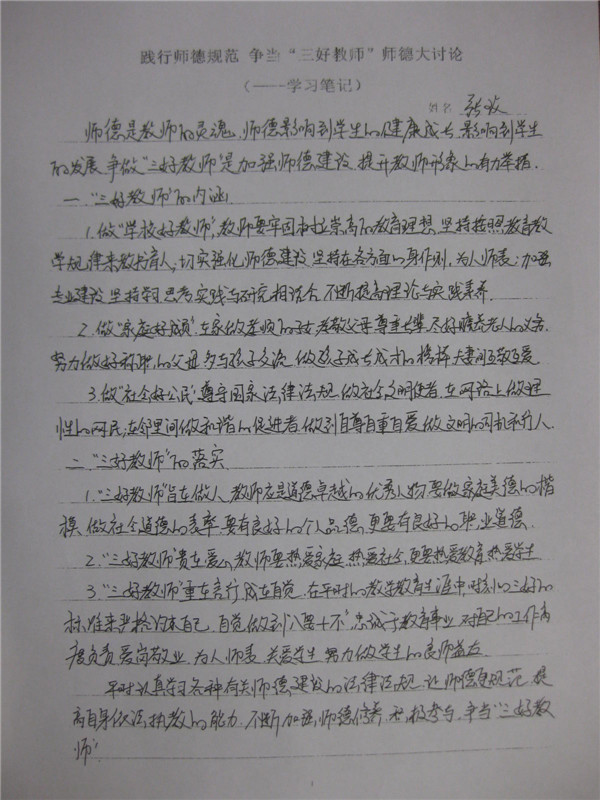 践行师德规范 争当“三好教师”师德大讨论
（——学习笔记）
姓名
师德是教师的灵魂，师德影响到学生的健康成长，影响到学生
的发展，争做“三好教师”是加强师德建设，提升教师形象的有力举措。
一、“三好教师”的内涵
1.做“学校好教师”，教师要牢固树立崇高的教育理想，坚持按照教育教
学规律来教书育人，切实强化师德建设，坚持在各方面以身作则，为人师表；加强
专业建设，坚持学习思考实践与研究相结合，不断提高理论与实践素养。
2.做“家庭好成员”，在家做孝顺的子女，孝敬父母尊重长辈，尽好赡养老人的义务，
努力做好称职的父母，多与孩子交流，做孩子成长成才的榜样，夫妻间互敬互爱
3.做“社会好公民”，尊守国家法律法规，做社会文明使者，在网络上做理
性的网民，在邻里间做和谐的促进者，做到自尊自重自爱，做文明的司机和行人。
二、“三好教师”的落实
1.“三好教师”旨在做人，教师应是道德卓越的优秀人物，要做家庭美德的楷
模，做社会道德的表率，要有良好的个人品德，更要有良好的职业道德。
2.“三好教师”贵在爱心，教师要热爱家庭，热爱社会，更要热爱教育，热爱学生
3.“三好教师”重在言行，成在自觉，在平时的教学教育生涯中，时刻以三好的
标准来严格约束自己，自觉做到“八要十不”，忠诚于教育事业，对自己的工作高
度负责，爱岗敬业，为人师表，关爱学生，努力做学生的良师益友。
平时认真学习各种有关师德建设的法律法规，让师德更规范，提
高自身依法执教的能力，不断加强师德修养，积极参与，争当“三好教
师”。